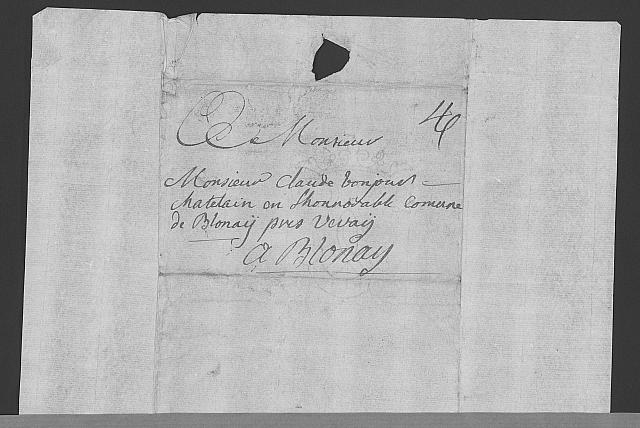 A Monsieur
4
Monsieur Claude bonjour
chatelain en lhonnorable Comune
de Blonaÿ pres Vevaÿ
A Blonaÿ